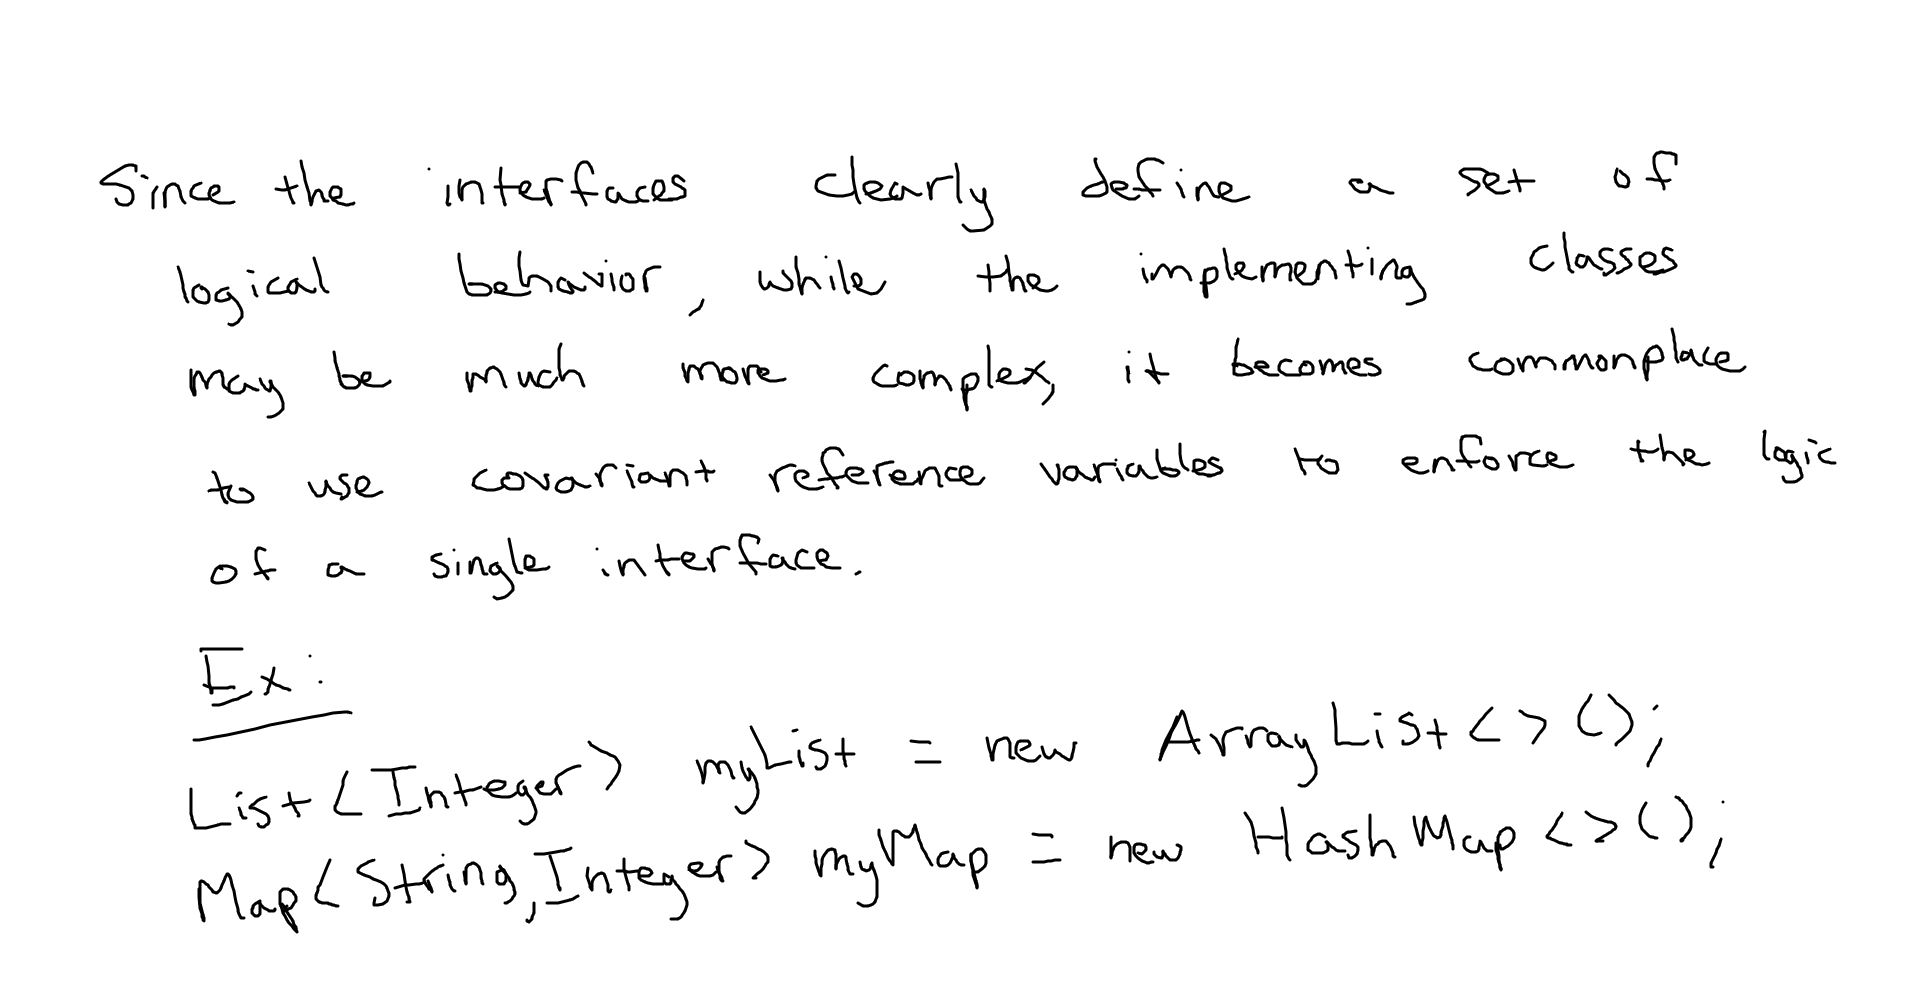 Since the interfaces clearly define a set of
logical behavior, while the implementing classes
may be much more complex, it becomes commonplace
to use covariant reference variables to enforce the logic
of a single interface.
Ex:
List<Integer> myList = new ArrayList<>();
Map<String,Integer> myMap = new HashMap<>();